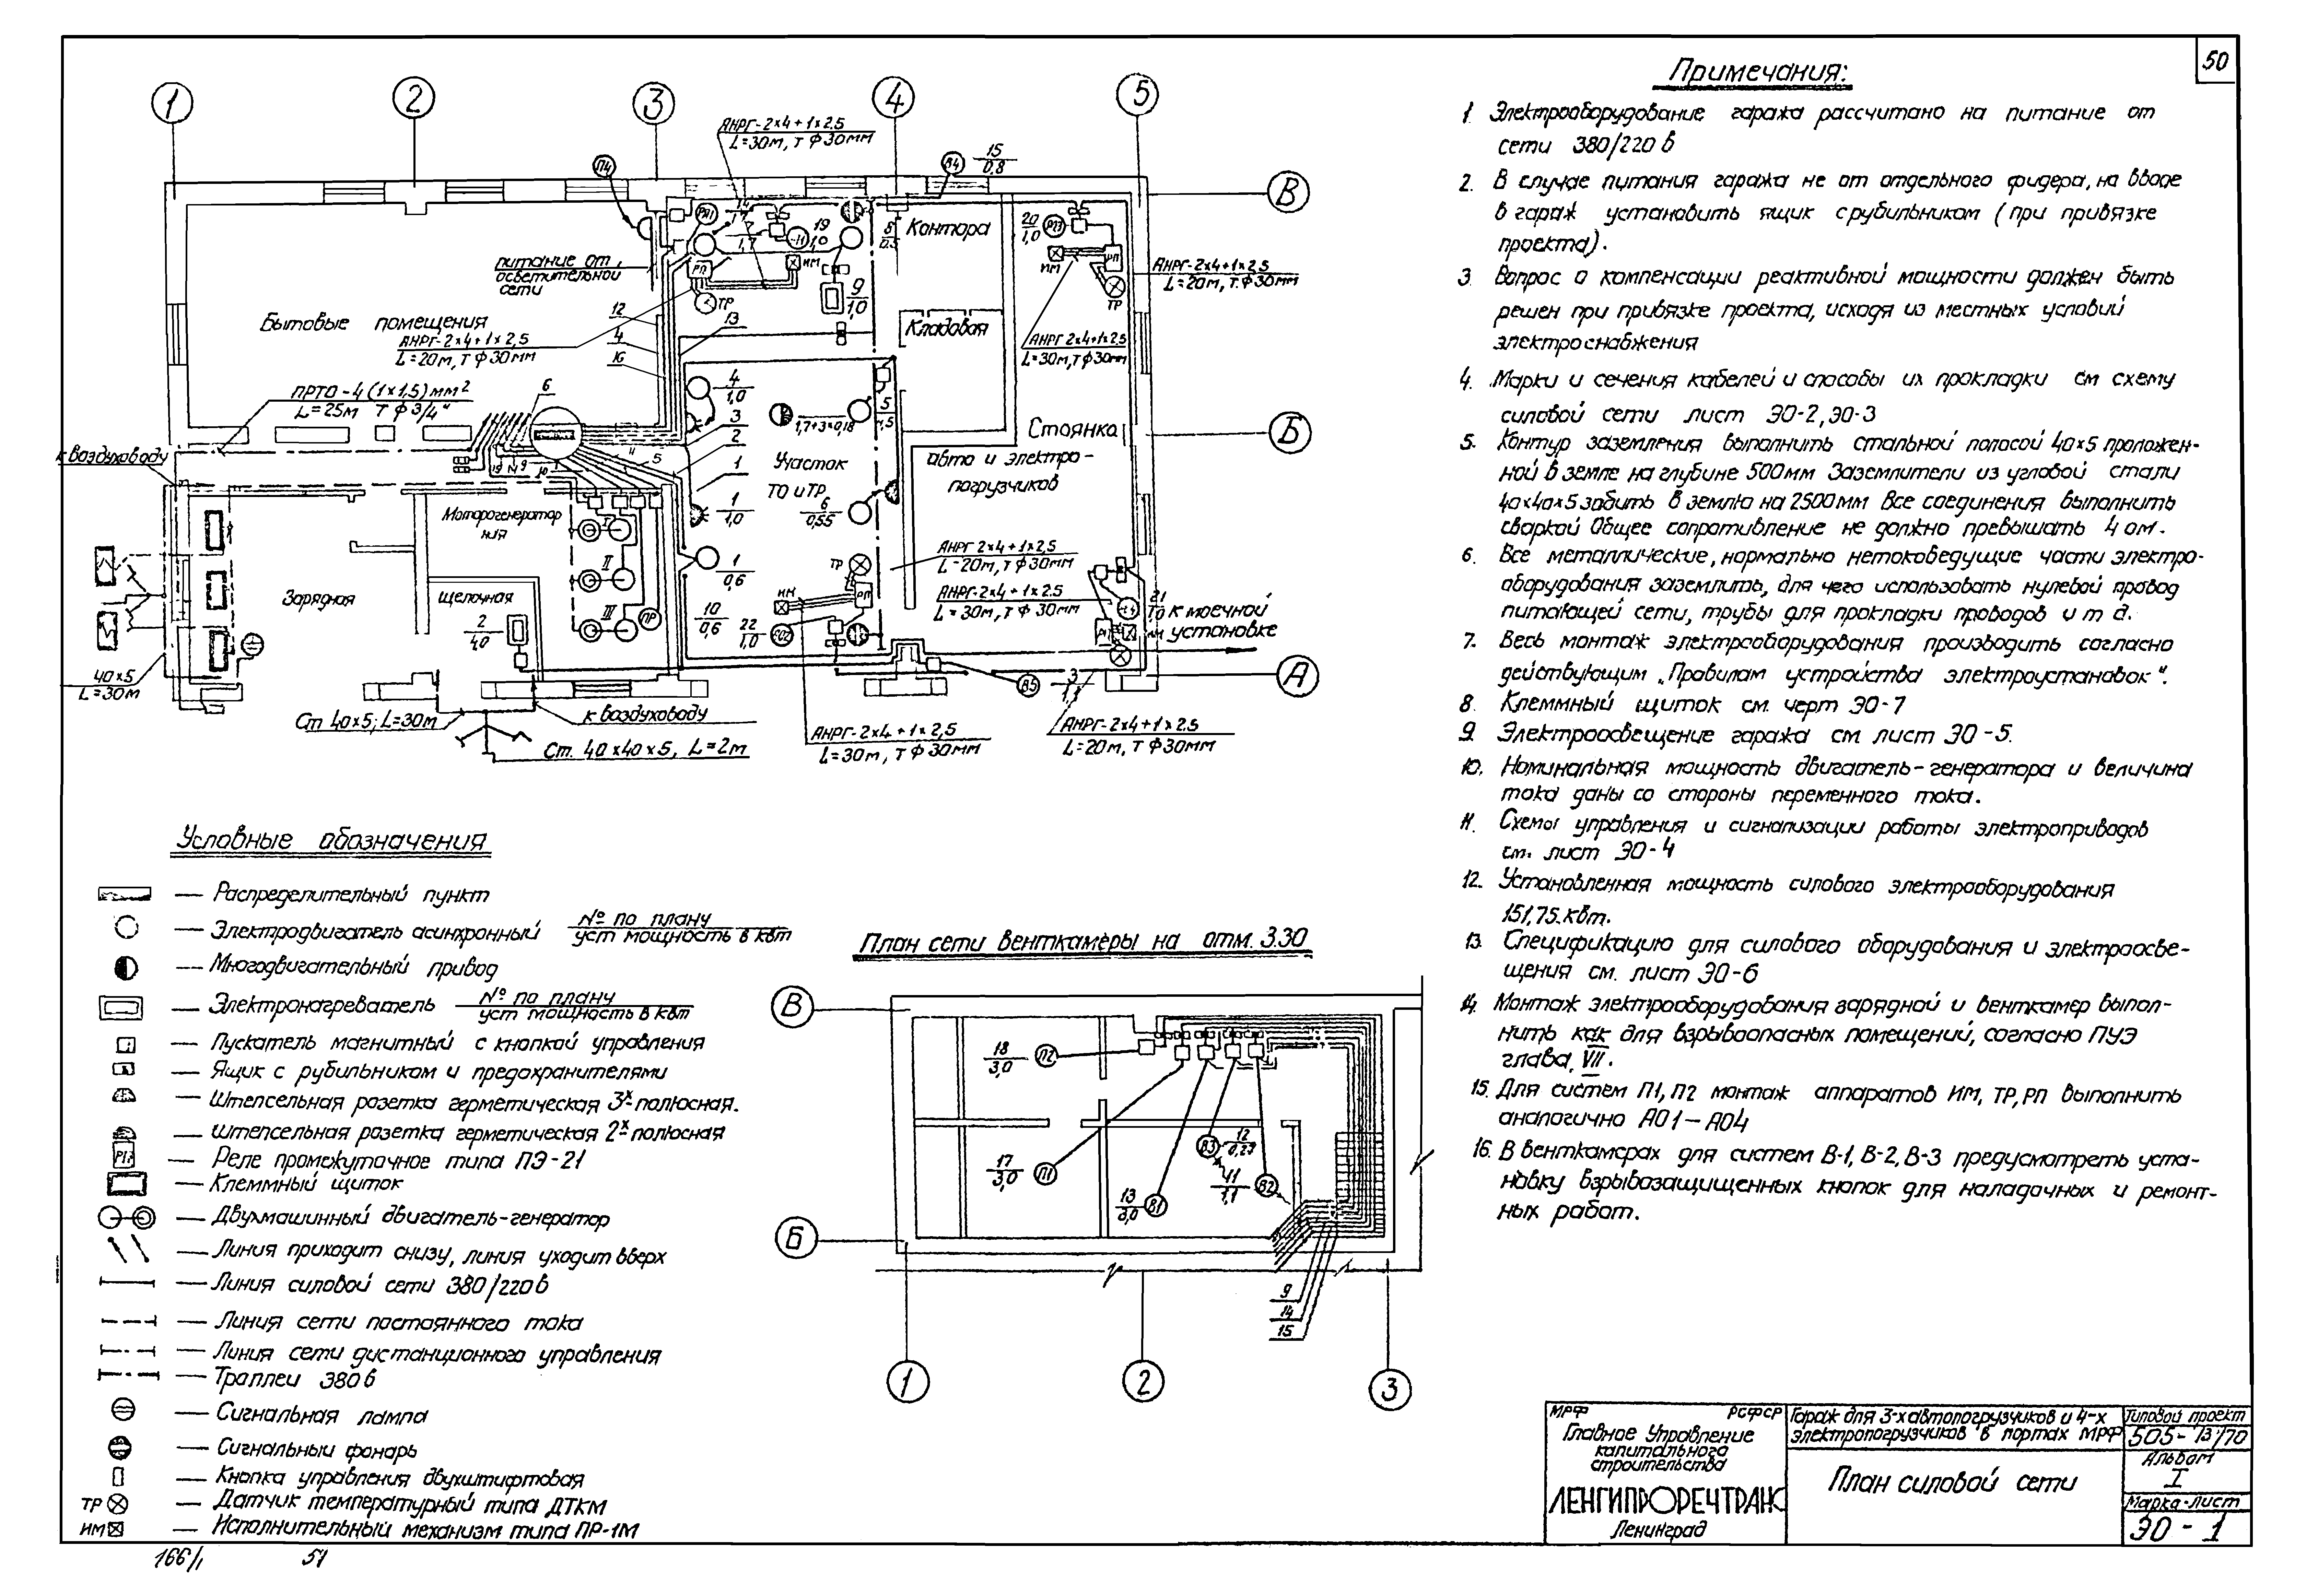 50
1
2
3
4
5
В
Б
А
АНРГ-2×4+1×2,5
L=30м, Т ф30мм
П4
В4
15
0,8
РП
ТР
ИМ
19
1,0
14
1,7
9
1,0
8
0,5
Контора
20
1,0
ИМ
РП
ТР
АНРГ-2×4+1×2,5
L=20м, Т.ф30мм
питание от
осветительной
сети
12
4
16
13
Бытовые помещения
АНРГ-2×4+1×2,5
L=20м, Т ф30мм
Кладовая
АНРГ 2×4+1×2,5
L=30м, Т ф30мм
ПРТО-4(1×1,5)мм²
L=25м Т ф3/4"
6
4
1,0
3
2
1
1,7+3×0,18
5
Стоянка
авто и электро-
погрузчиков
к воздуховоду
Участок
ТО и ТР
1
1,0
6
0,55
Моторогенератор
ная
I
II
III
ПР
Зарядная
щелочная
2
4,0
1
0,6
10
0,6
22
1,0
ТР
ИМ
РП
АНРГ 2×4+1×2,5
L=20м, Т ф30мм
АНРГ-2×4+1×2.5
L=30м, Т ф30мм
21
к моечной
установке
40×5
L=30м
Ст 40×5; L=30м
к воздуховоду
Ст. 40×40×5, L=2м
В5
3
1,1
АНРГ-2×4+1×2,5
L=30м, Т ф30мм
АНРГ-2×4+1×2.5
L=20м, Т ф30мм
Условные обозначения
— Распределительный пункт
— Электродвигатель асинхронный № по плану
уст мощность в квт
— Многодвигательный привод
— Электронагреватель № по плану
уст мощность в квт
— Пускатель магнитный с кнопкой управления
— Ящик с рубильником и предохранителями
— Штепсельная розетка герметическая 3х полюсная.
— Штепсельная розетка герметическая 2х полюсная
— Реле промежуточное типа ПЭ-21
— Клеммный щиток
— Двухмашинный двигатель-генератор
— Линия приходит снизу, линия уходит вверх
— Линия силовой сети 380/220в
— Линия сети постоянного тока
— Линия сети дистанционного управления
— Троллеи 380в
— Сигнальная лампа
— Сигнальный фонарь
— Кнопка управления двухштифтовая
ТР — Датчик температурный типа ДТКМ
ИМ — Исполнительный механизм типа ПР-1М
166/1 51
План сети венткамеры на отм. 3.30
В
Б
18
3,0
П2
17
3,0
П1
13
3,0
В1
В3
12
0,27
11
1,1
В2
9
14
15
1
2
3
Примечания:
1. Электрооборудование гаража рассчитано на питание от
сети 380/220в
2. В случае питания гаража не от отдельного фидера, на вводе
в гараж установить ящик с рубильником (при привязке
проекта).
3. Вопрос о компенсации реактивной мощности должен быть
решен при привязке проекта, исходя из местных условий
электроснабжения
4. Марки и сечения кабелей и способы их прокладки см схему
силовой сети лист ЭО-2, ЭО-3
5. Контур заземления выполнить стальной полосой 40×5 проложен-
ной в земле на глубине 500мм Заземлители из угловой стали
40×40×5 забить в землю на 2500мм Все соединения выполнить
сваркой Общее сопротивление не должно превышать 4 ом.
6. Все металлические, нормально нетоковедущие части электро-
оборудования заземлить, для чего использовать нулевой провод
питающей сети, трубы для прокладки проводов и т д.
7. Весь монтаж электрооборудования производить согласно
действующим „Правилам устройства электроустановок".
8. Клеммный щиток см. черт ЭО-7
9. Электроосвещение гаража см лист ЭО-5.
10. Номинальная мощность двигатель-генератора и величина
тока даны со стороны переменного тока.
11. Схемы управления и сигнализации работы электроприводов
см. лист ЭО-4
12. Установленная мощность силового электрооборудования
151,75 квт.
13. Спецификацию для силового оборудования и электроосве-
щения см. лист ЭО-6
14. Монтаж электрооборудования зарядной и венткамер выпол-
нить как для взрывоопасных помещений, согласно ПУЭ
глава VII.
15. Для систем П1, П2 монтаж аппаратов ИМ, ТР, РП выполнить
аналогично А01-А04
16. В венткамерах для систем В-1, В-2, В-3 предусмотреть уста-
новку взрывозащищенных кнопок для наладочных и ремонт-
ных работ.
МРФ РСФСР
Главное Управление
капитального
строительства
ЛЕНГИПРОРЕЧТРАНС
Ленинград
Гараж для 3-х автопогрузчиков и 4-х
электропогрузчиков в портах МРФ
План силовой сети
Типовой проект
505-13/70
Альбом
I
Марка-лист
ЭО-1